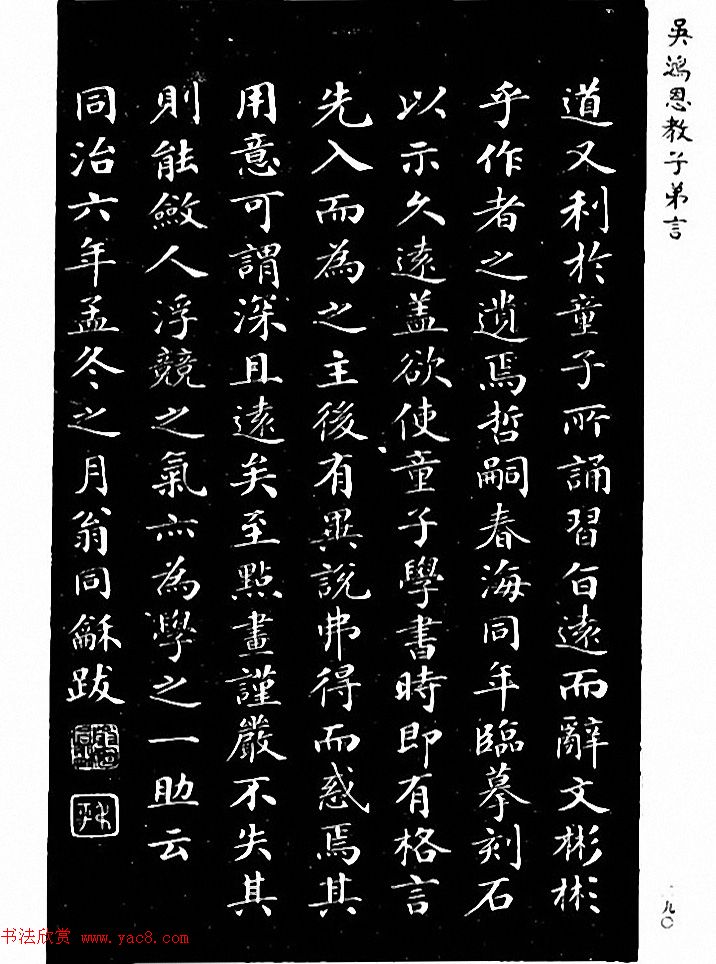 吳鴻恩教子弟言
道又利於童子所誦習旨遠而辭文彬彬
乎作者之遺焉哲嗣春海同年臨摹刻石
以示久遠盖欲使童子學書時即有格言
先入而為之主後有異說弗得而惑焉其
用意可謂深且遠矣至點畫謹嚴不失其
則能斂人浮競之氣亦為學之一助云
同治六年孟冬之月翁同龢跋
一九〇
书法欣赏 www.yac8.com